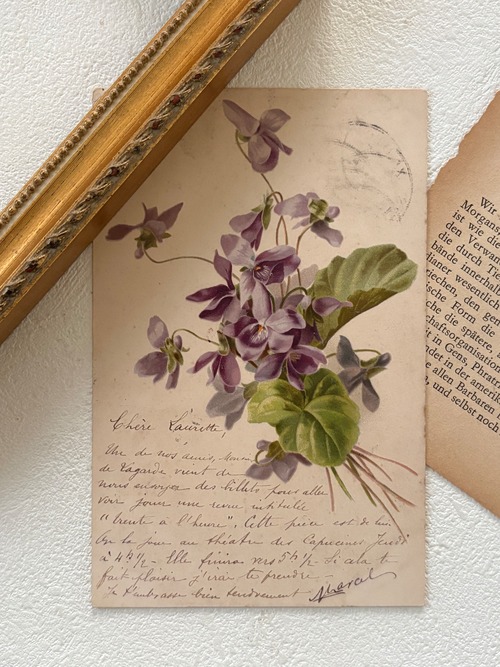 Chère Laurette,
Un de nos amis, Monsieur
de Lagarde vient de
nous envoyer des billets pour aller
voir jouer une revue intitulée
"trente à l'heure". Cette pièce est de lui.
On la joue au théâtre des Capucines Jeudi
à 4h ½ - Elle finira vers 5h ½ Si cela te
fait plaisir j'irai te prendre -
Je t'embrasse bien tendrement
Marcel
Wir
Morgans
ist wie
den Verwan
die durch T
bände innerhal
dianer wesentli
riechen, den ger
ische Form die
che die spätere,
chaftsorganisation
ndet in der amerik
it in Gens, Phratr
e allen Barbaren
, und selbst noch